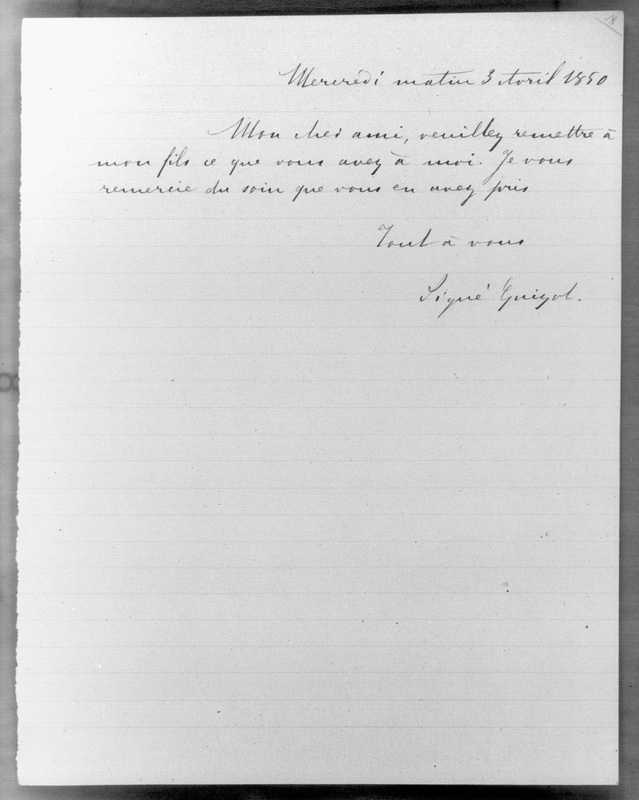 18
Mercredi matin 3 Avril 1850
Mon cher ami, veuillez remettre à
mon fils ce que vous avez à moi. Je vous
remercie du soin que vous en avez pris
Tout à vous
Signé Guizot.